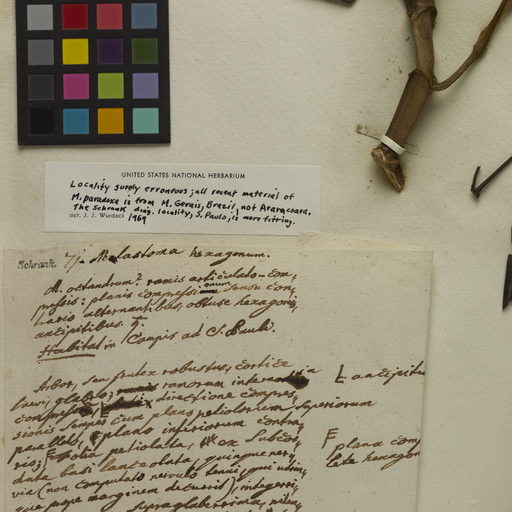 UNITED STATES NATIONAL HERBARIUM
Locality surely erroneous; all recent material of
M. paradoxa is from M. Gerais, Brazil, not Araracoara.
The Schrank diag. locality, S. Paulo, is more fitting.
det. J. J. Wurdack 1969
Schrank. 71. Melastoma hexagonum.
M. octandrum? ramis articulato-com
pressis: planis compressi sensu con,
trario alternantibus, obtuse hexagonis,
ancipitibus. ♄.
Habitat in Campis ad S. Pauli.
Arbor, seu frutex robustus, cortice
laevi, glabro; ramorum internodia
compressa, directione compres,
sionis semper cum plano petiolorum superiorum
parallelo, plano inferiorum contra,
rio; Folia petiolata, ex subcor,
data basi lanceolata, quinque ner,
via (non computato nervulo tenui, qui utrin,
que marginem decurrit), integerri,
supra glaberrima,
ancipitia
F plana com
hexagon